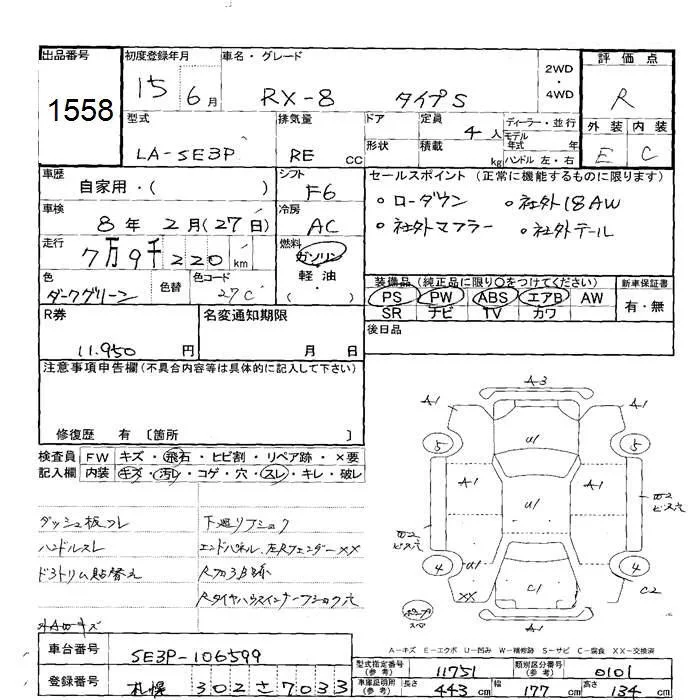 出品番号 初度登録年月 車名・グレード 評価点
1558 15 6月 RX-8 タイプS 2WD ・4WD R
型式 排気量 ドア 定員 4人 ディーラー・並行 外装 内装
LA-SE3P RE cc 形状 積載 kg モデル年式 年 ハンドル 左・右 E C
車歴 シフト セールスポイント (正常に機能するものに限ります)
自家用・( ) F6
車検 冷房 ・ローダウン ・社外18AW
8年 2月(27日) AC ・社外マフラー ・社外テール
走行 燃料
7万9千220km ガソリン
色 色替 色コード 軽油 装備品 (純正品に限り○をつけてください) 新車保証書
ダークグリーン 27C ( ) PS PW ABS エアB AW 有・無
R券 名変通知期限 SR ナビ TV カワ
11.950円 月 日 後日品
注意事項申告欄(不具合内容等は具体的に記入して下さい)
修復歴 有 〔箇所 〕
検査員 FW キズ・飛石・ヒビ割・リペア跡・×要
記入欄 内装 キズ・汚レ・コゲ・穴・スレ・キレ・破レ
A3
A1 A1
5 U1 5
A1 A1
U1
4 U1 4
XX C1 C2
A1
ダッシュ板コレ 下廻リフショク
ハンドルスレ エンドパネル.左RフェンダーXX
ドβトリム貼替え
外A四キズ
A-キズ E-エクボ U-凹み W-補修跡 S-サビ C-腐食 XX-交換済
車台番号 SE3P-106599 型式指定番号(参考) 11751 類別区分番号(参考) 0101
登録番号 札幌 302 さ 7033 車庫証明用(参考) 長さ 443cm 幅 177cm 高さ 134cm